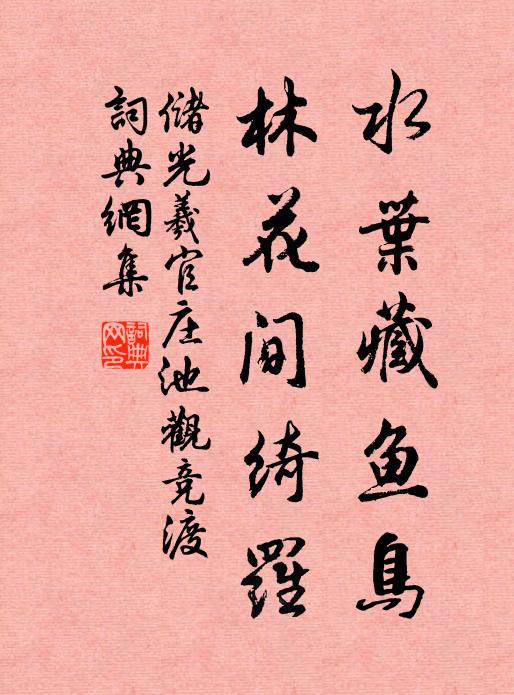 水葉藏魚鳥
林花间綺羅
儲光羲官庄池觀竞渡
詞典網集
詞典
网印